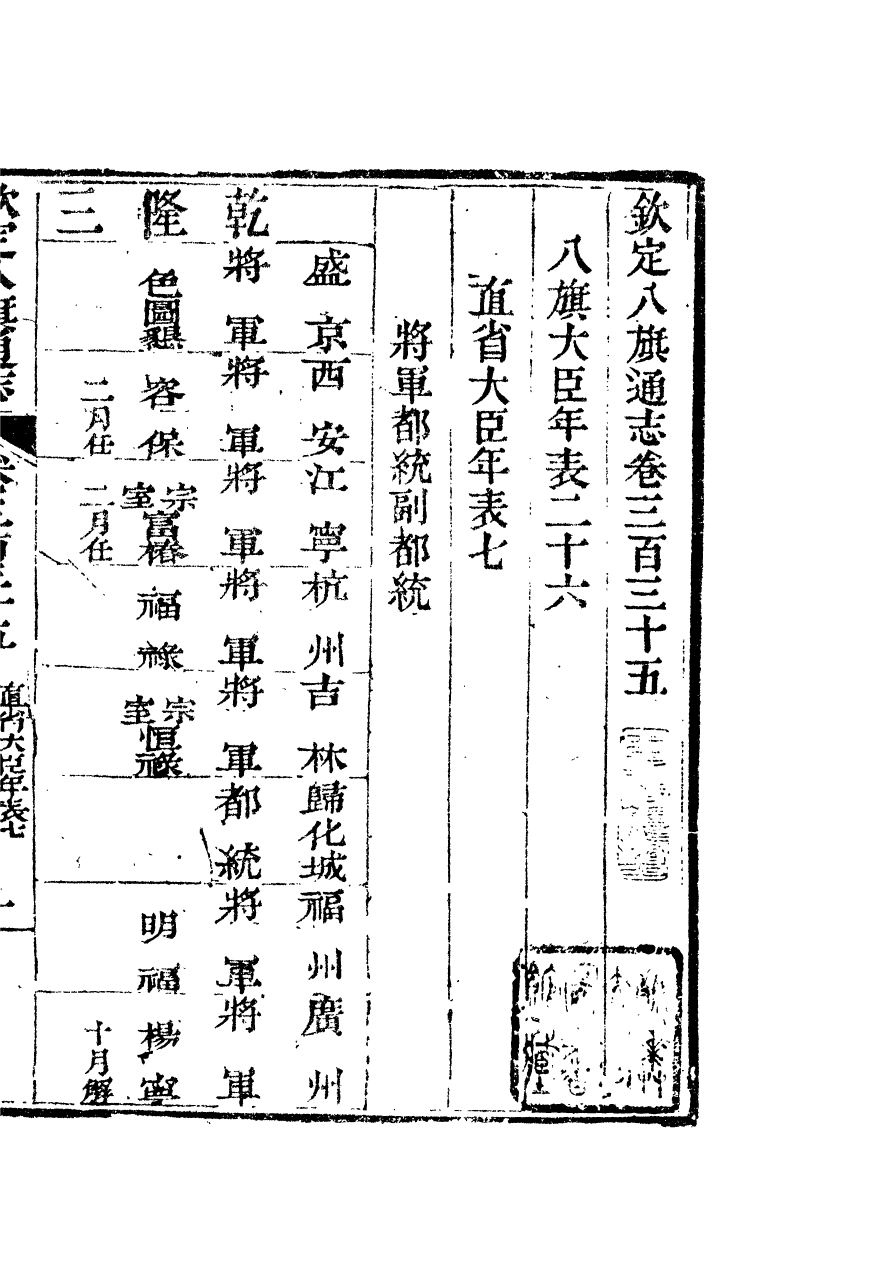 欽定八旗通志卷三百三十五
八旗大臣年表二十六
直省大臣年表七
將軍都統副都統
盛京西安江寧杭州吉林歸化城福州廣州
乾將軍將軍將軍將軍將軍都統將軍將軍
隆色圖懇容保宗室富椿福祿宗室恒祿明福楊寧
三二月任二月任十月解
欽定八旗通志
直省大臣年表七